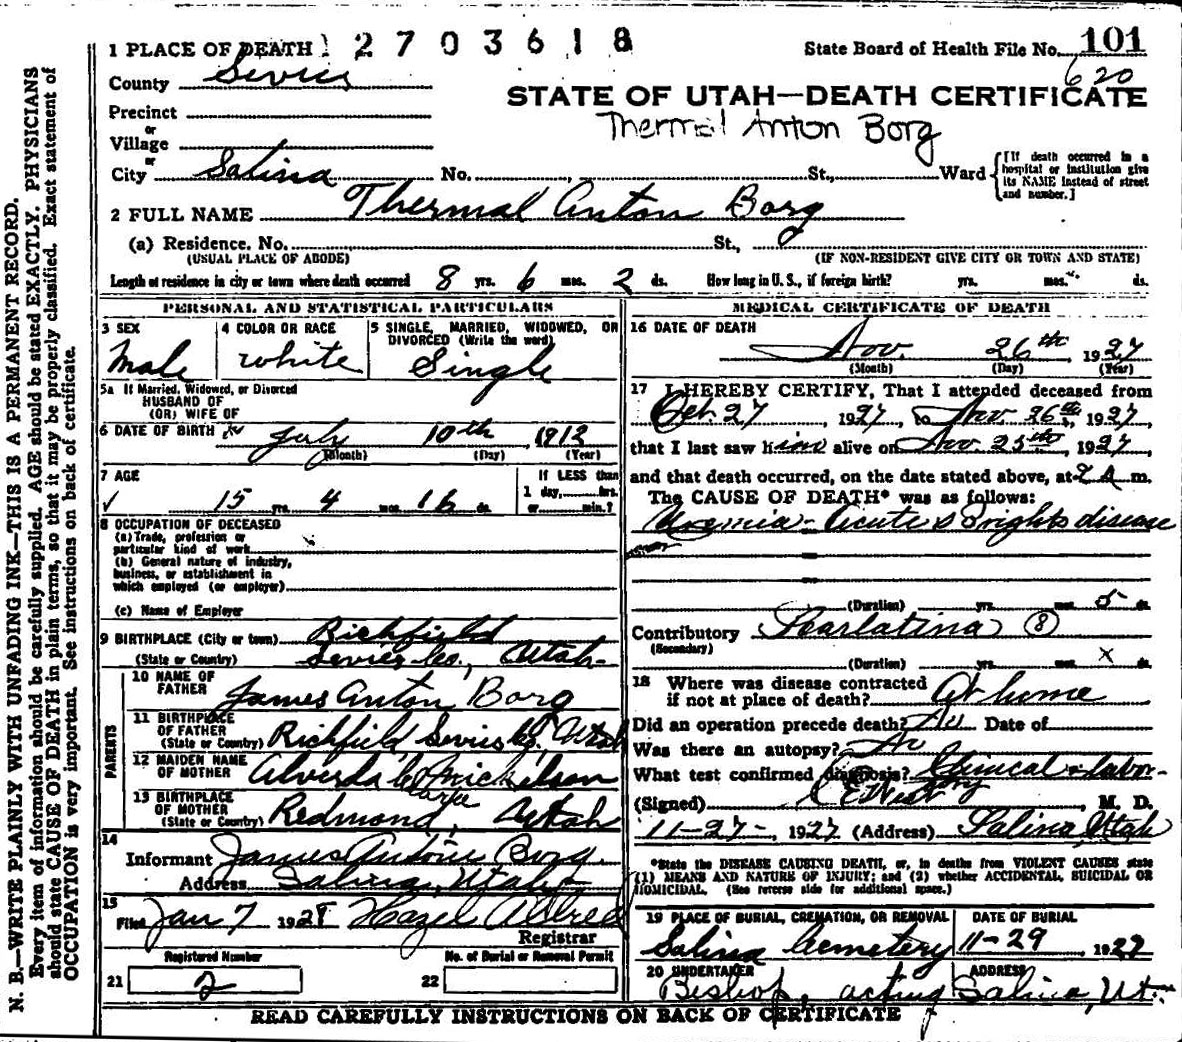 1 PLACE OF DEATH 12703618 State Board of Health File No. 101
County Sevier 620
STATE OF UTAH—DEATH CERTIFICATE
Precinct
Thermal Anton Borg
or
Village
or
City Salina No. , St., Ward
[If death occurred in a hospital or institution give its NAME instead of street and number.]
2 FULL NAME Thermal Anton Borg
(a) Residence. No. St.,
(USUAL PLACE OF ABODE) (IF NON-RESIDENT GIVE CITY OR TOWN AND STATE)
Length of residence in city or town where death occurred 8 yrs. 6 mos. 2 ds. How long in U. S., if foreign birth? yrs. mos. ds.
PERSONAL AND STATISTICAL PARTICULARS
3 SEX 4 COLOR OR RACE 5 SINGLE, MARRIED, WIDOWED, OR
DIVORCED (Write the word)
Male White Single
5a If Married, Widowed, or Divorced
HUSBAND OF
(OR) WIFE OF
6 DATE OF BIRTH July 10th 1912
(Month) (Day) (Year)
7 AGE If LESS than
1 day, hrs.
15 yrs. 4 mos. 16 ds. or min.?
8 OCCUPATION OF DECEASED
(a) Trade, profession or
particular kind of work
(b) General nature of industry,
business, or establishment in
which employed (or employer)
(c) Name of Employer
9 BIRTHPLACE (City or town) Richfield
(State or Country) Sevier Co., Utah
PARENTS
10 NAME OF
FATHER James Anton Borg
11 BIRTHPLACE
OF FATHER
(State or Country) Richfield Sevier Co. Utah
12 MAIDEN NAME
OF MOTHER Alverda Mickelson
13 BIRTHPLACE
OF MOTHER
(State or Country) Redmond, Utah
14
Informant James Antone Borg
Address Salina, Utah
15
Filed Jan 7 1928 Hazel Allred
Registrar
Registered Number No. of Burial or Removal Permit
21 2 22
MEDICAL CERTIFICATE OF DEATH
16 DATE OF DEATH
Nov. 26th, 1927
(Month) (Day) (Year)
17 I HEREBY CERTIFY, That I attended deceased from
Oct. 27, 1927, to Nov. 26th, 1927
that I last saw him alive on Nov. 25th, 1927
and that death occurred, on the date stated above, at 2 A m.
The CAUSE OF DEATH* was as follows:
Uremia - Acute Brights disease
(Duration) yrs. mos. 5 ds.
Contributory Scarlatina 8
(Secondary)
(Duration) yrs. mos. X ds.
18 Where was disease contracted
if not at place of death? At home
Did an operation precede death? No Date of
Was there an autopsy? No
What test confirmed diagnosis? Clinical & labor-
(Signed) C E West, M. D.
11-27-, 1927 (Address) Salina, Utah
*State the DISEASE CAUSING DEATH, or, in deaths from VIOLENT CAUSES state
(1) MEANS AND NATURE OF INJURY; and (2) whether ACCIDENTAL, SUICIDAL OR
HOMICIDAL. (See reverse side for additional space.)
19 PLACE OF BURIAL, CREMATION, OR REMOVAL DATE OF BURIAL
Salina Cemetery 11-29 1927
20 UNDERTAKER ADDRESS
Bishop, acting Salina, Ut.
READ CAREFULLY INSTRUCTIONS ON BACK OF CERTIFICATE
N. B.—WRITE PLAINLY WITH UNFADING INK—THIS IS A PERMANENT RECORD.
Every item of information should be carefully supplied. AGE should be stated EXACTLY. PHYSICIANS
should state CAUSE OF DEATH in plain terms, so that it may be properly classified. Exact statement of
OCCUPATION is very important. See instructions on back of certificate.